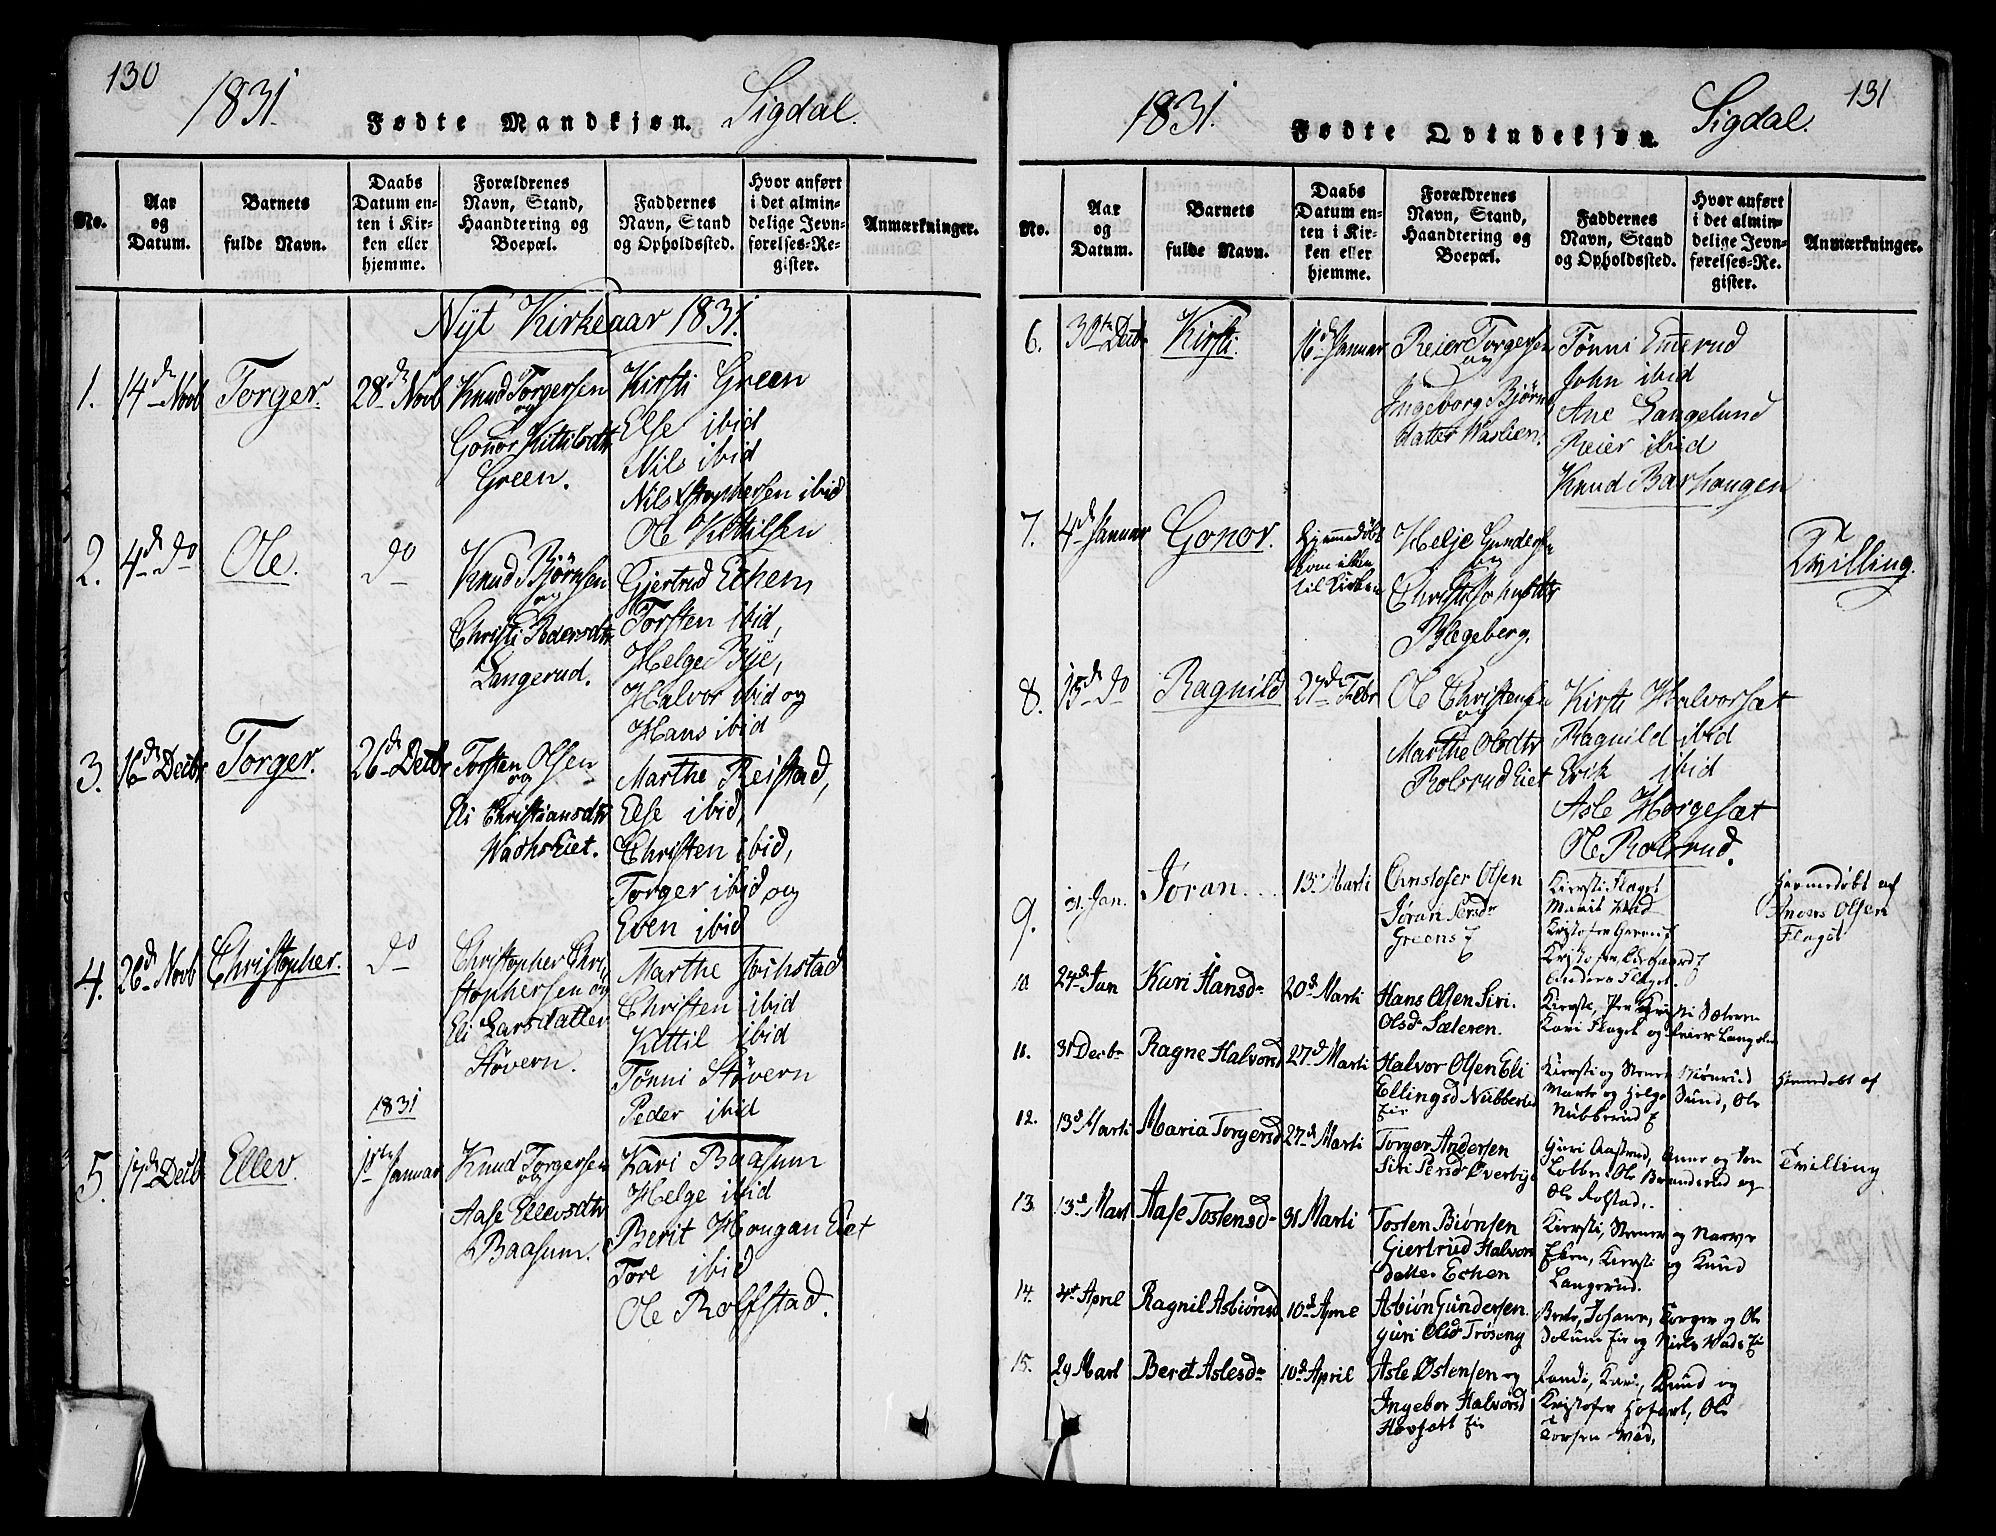 130
1831.
Fødte Mandkjøn.
Sigdal.
No.
Aar
og
Datum.
Barnets
fulde Navn.
Daabs
Datum en-
ten i Kir-
ken eller
hjemme.
Forældrenes
Navn, Stand,
Haandtering og
Boepæl.
Faddernes
Navn, Stand
og Opholdssted.
Hvor anført
i det almin-
delige Jevn-
førelses-Re-
gister.
Anmærkninger.
Nyt Kirkeaar 1831.
1.
14de Novb
Torger.
28de Novb
Knud Torgersen
og
Gonor Kittilsdtr
Green.
Kirsti Green
Else ibid
Nils ibid
Nils Xstophersen ibid
Ole Kittilsen
2.
4de do
Ole.
do
Knud Bjørnsen
og
Christi Pedersdtr
Langerud.
Gjertrud Echern
Torsten ibid,
Helge Bye,
Halvor ibid og
Hans ibid
3.
16de Decbr
Torger.
26de Decbr
Torsten Olsen
og
Eli Christiansdtr
Wadhs Eiet.
Marthe Reistad,
Else ibid,
Christen ibid,
Torger ibid og
Even ibid
4.
26de Novb
Christopher.
do
Christopher Chri
stophersen og
Eli Larsdatter
Støvern.
Marthe
Christen ibid
Kittil ibid
Tønni Støvern
Peder ibid
1831
5.
17de Decbr
Ellev.
1ste Januar
Knud Torgersen
og
Aase Ellevsdtr
Baasum.
Kari Baasum
Helge ibid
Berit Hougan Eiet
Tore ibid
Ole Rolfstad.
1831.
Fødte Qvindekjøn.
Sigdal.
131
No.
Aar
og
Datum.
Barnets
fulde Navn.
Daabs
Datum en-
ten i Kir-
ken eller
hjemme.
Forældrenes
Navn, Stand,
Haandtering og
Boepæl.
Faddernes
Navn, Stand
og Opholdssted.
Hvor anført
i det almin-
delige Jevn-
førelses-Re-
gister.
Anmærkninger.
6.
30te Decbr
Kirsti.
16de Januar
Reier Torgersen
og
Ingeborg Bjørns
datter Warlien.
Tønni Enerud
John ibid
Ane Langelund
Reier ibid
Knud Barhaugen
7.
4de Januar
Gonor.
Hjemmedøbt
kom ikke
til Kirken
Helje Gundersen
og
Christi Johnsdtr
Blegeberg.
Tvilling.
8.
15de do
Ragnild
27de Febr
Ole Christensen
og
Marthe Olsdtr
Rolsrud Eiet
Kirsti Halvorsæt
Ragnild ibid
Erik ibid
Asle Horgesæt
Ole Rolsrud.
9.
31. Jan.
Jøran.
13de Marti
Christofer Olsen
Jøran Persdr
Greens E
Kiersti Flaget
Marit
Kristofer
Kristofer
Anders Flaget.
Hiemmedøbt af
Anders Olsen
Flaget
10.
24de Jan
Kari Hansdr
20de Marti
Hans Olsen Siri
Olsdr Sæteren.
Kiersti, Per Kristi Sæteren
Kari Flaget og Reier
11.
31 Decbr
Ragne Halvorsd
27de Marti
Halvor Olsen Eli
Ellingsd Nubberud
Eie
Kiersti og Stener
Marte og Helge Sund, Ole
Nubberud E
Hiemdøbt af
12.
13de Marti
Maria Torgersd
27de Marti
Torger Andersen
Siri Persdr Overbye
Guri Aastrud, Anne og
Lobben Ole Branderud og
Ole Rolstad.
Tvilling
13.
13de Mart
Aase Tostensdr
31 Marti
Tosten Biønsen
Giertrud Halvors
datter Echen
Kiersti, Stener og Narve
Eken, Kiersti og Knud
Langerud.
14.
4de April
Ragnil Asbiønsd
10de Apre
Asbiøn Gundersen
Guri Olsd Trøseng
Berte, Johanne, Torger og Ole
Solum Eie og Niels Wads Ei
15.
29 Mart
Beret Aslesdr
10de April
Asle Østensen og
Ingebor Halvorsd
Hovsætt Eie
Randi, Kari, Knud og
Kristofer Hofsæt, Ole
Torsen Wad,